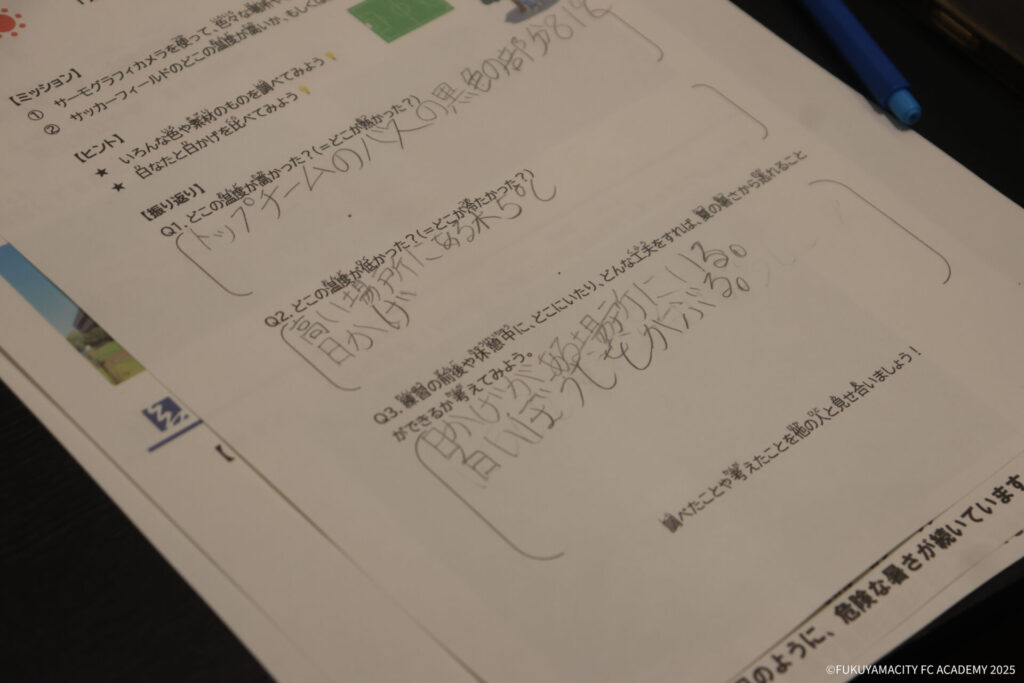 【ミッション】
① サーモグラフィカメラを使って、色々な場所や
② サッカーフィールドのどこの温度が高いか、もしくは
【ヒント】
★ いろんな色や素材のものを調べてみよう
★ 日なたと日かげを比べてみよう
【振り返り】
Q1. どこの温度が高かった?(=どこが暑かった?)
トップチームのバスの黒色の部分81℃
Q2. どこの温度が低かった?(=どこが冷たかった?)
高い場所にある木5℃
日かげ
Q3. 練習の前後や休憩中に、どこにいたり、どんな工夫をすれば、夏の暑さから逃れること
ができるか考えてみよう。
日かげがある場所にいる。
白いぼうしをかぶる。
調べたことや考えたことを他の人と見せ合いましょう!
のように、危険な暑さが続いています
©FUKUYAMACITY FC ACADEMY 2025